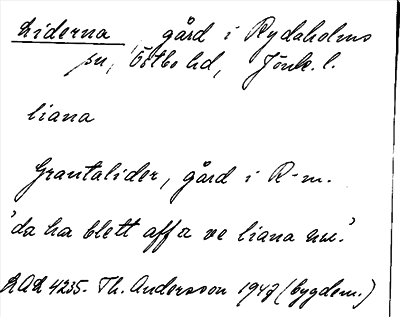 Liderna, gård i Rydaholms
sn, Östbo hd, Jönk. l.
liana
Grantalider, gård i R-m.
'da ha blett affa ve liana nu.'
ULD 4235. Th. Andersson 1947 (bygdem.)